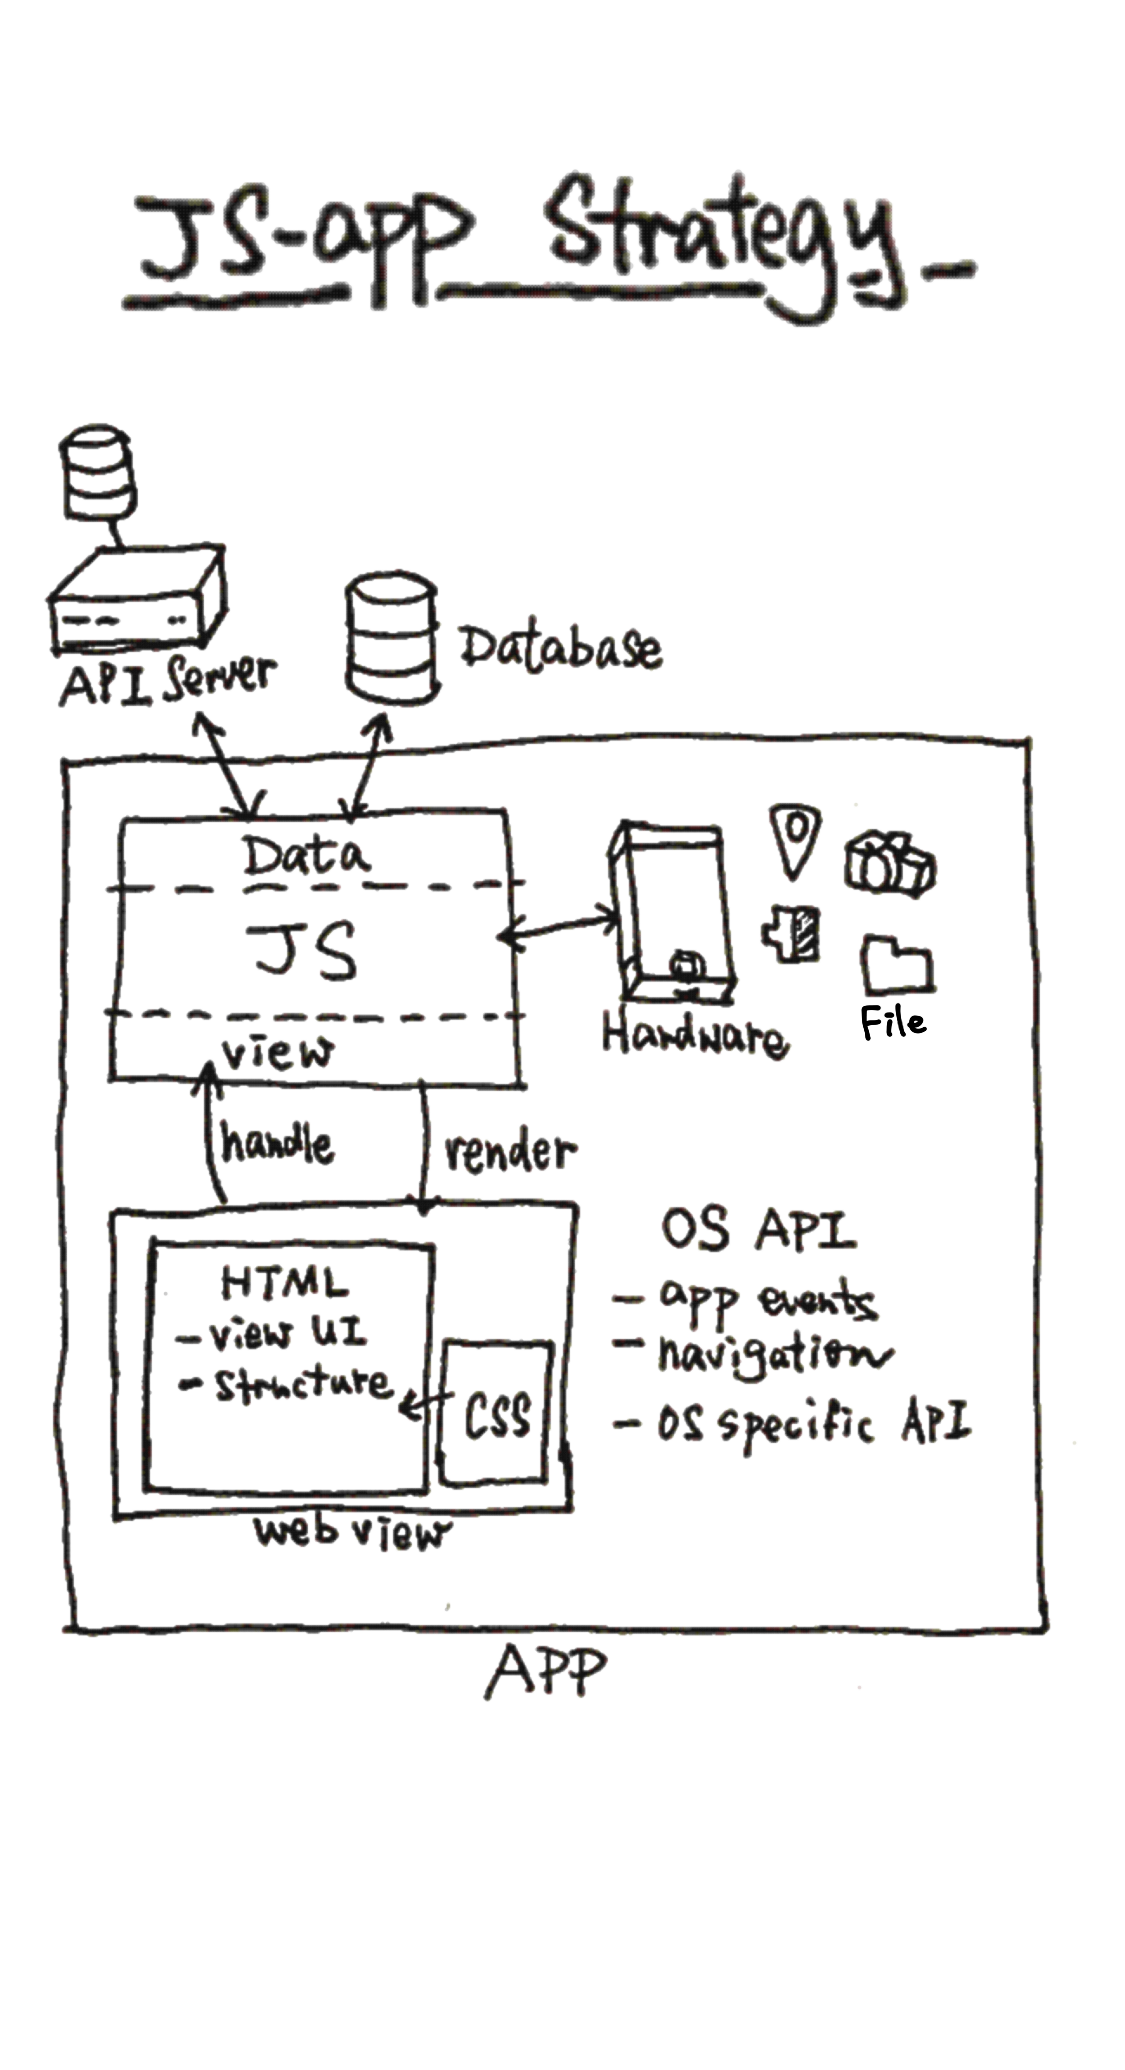 JS-app Strategy
API Server
Database
Data
JS
view
Hardware
File
handle
render
HTML
- view UI
- structure
CSS
web view
OS API
- app events
- navigation
- OS specific API
APP